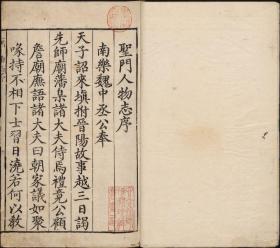 聖門人物志序
南樂魏中丞公奉
天子詔來填拊晉陽故事越三日謁
先師廟藩臬諸大夫侍焉禮竟公顧
詹廟廡語諸大夫曰朝家議如聚
喙持不相下士習日澆若何以教